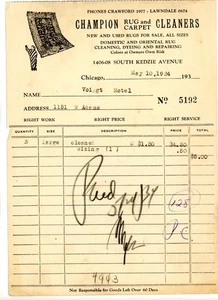 PHONES CRAWFORD 1977 - LAWNDALE 0674
CHAMPION RUG and CARPET CLEANERS
NEW AND USED RUGS FOR SALE, ALL SIZES
DOMESTIC AND ORIENTAL RUG
CLEANING, DYEING AND REPAIRING
Colors at Owners Own Risk
1406-08 SOUTH KEDZIE AVENUE
Chicago, May 10, 1934 193
NAME Voigt Hotel
No 5192
ADDRESS 1151 W Adams
RIGHT WORK RIGHT PRICE RIGHT SERVICE
QUANTITY SIZE
large cleaned
Sizing (1)
Paid
128
Not Responsible for Goods Left Over 60 Days